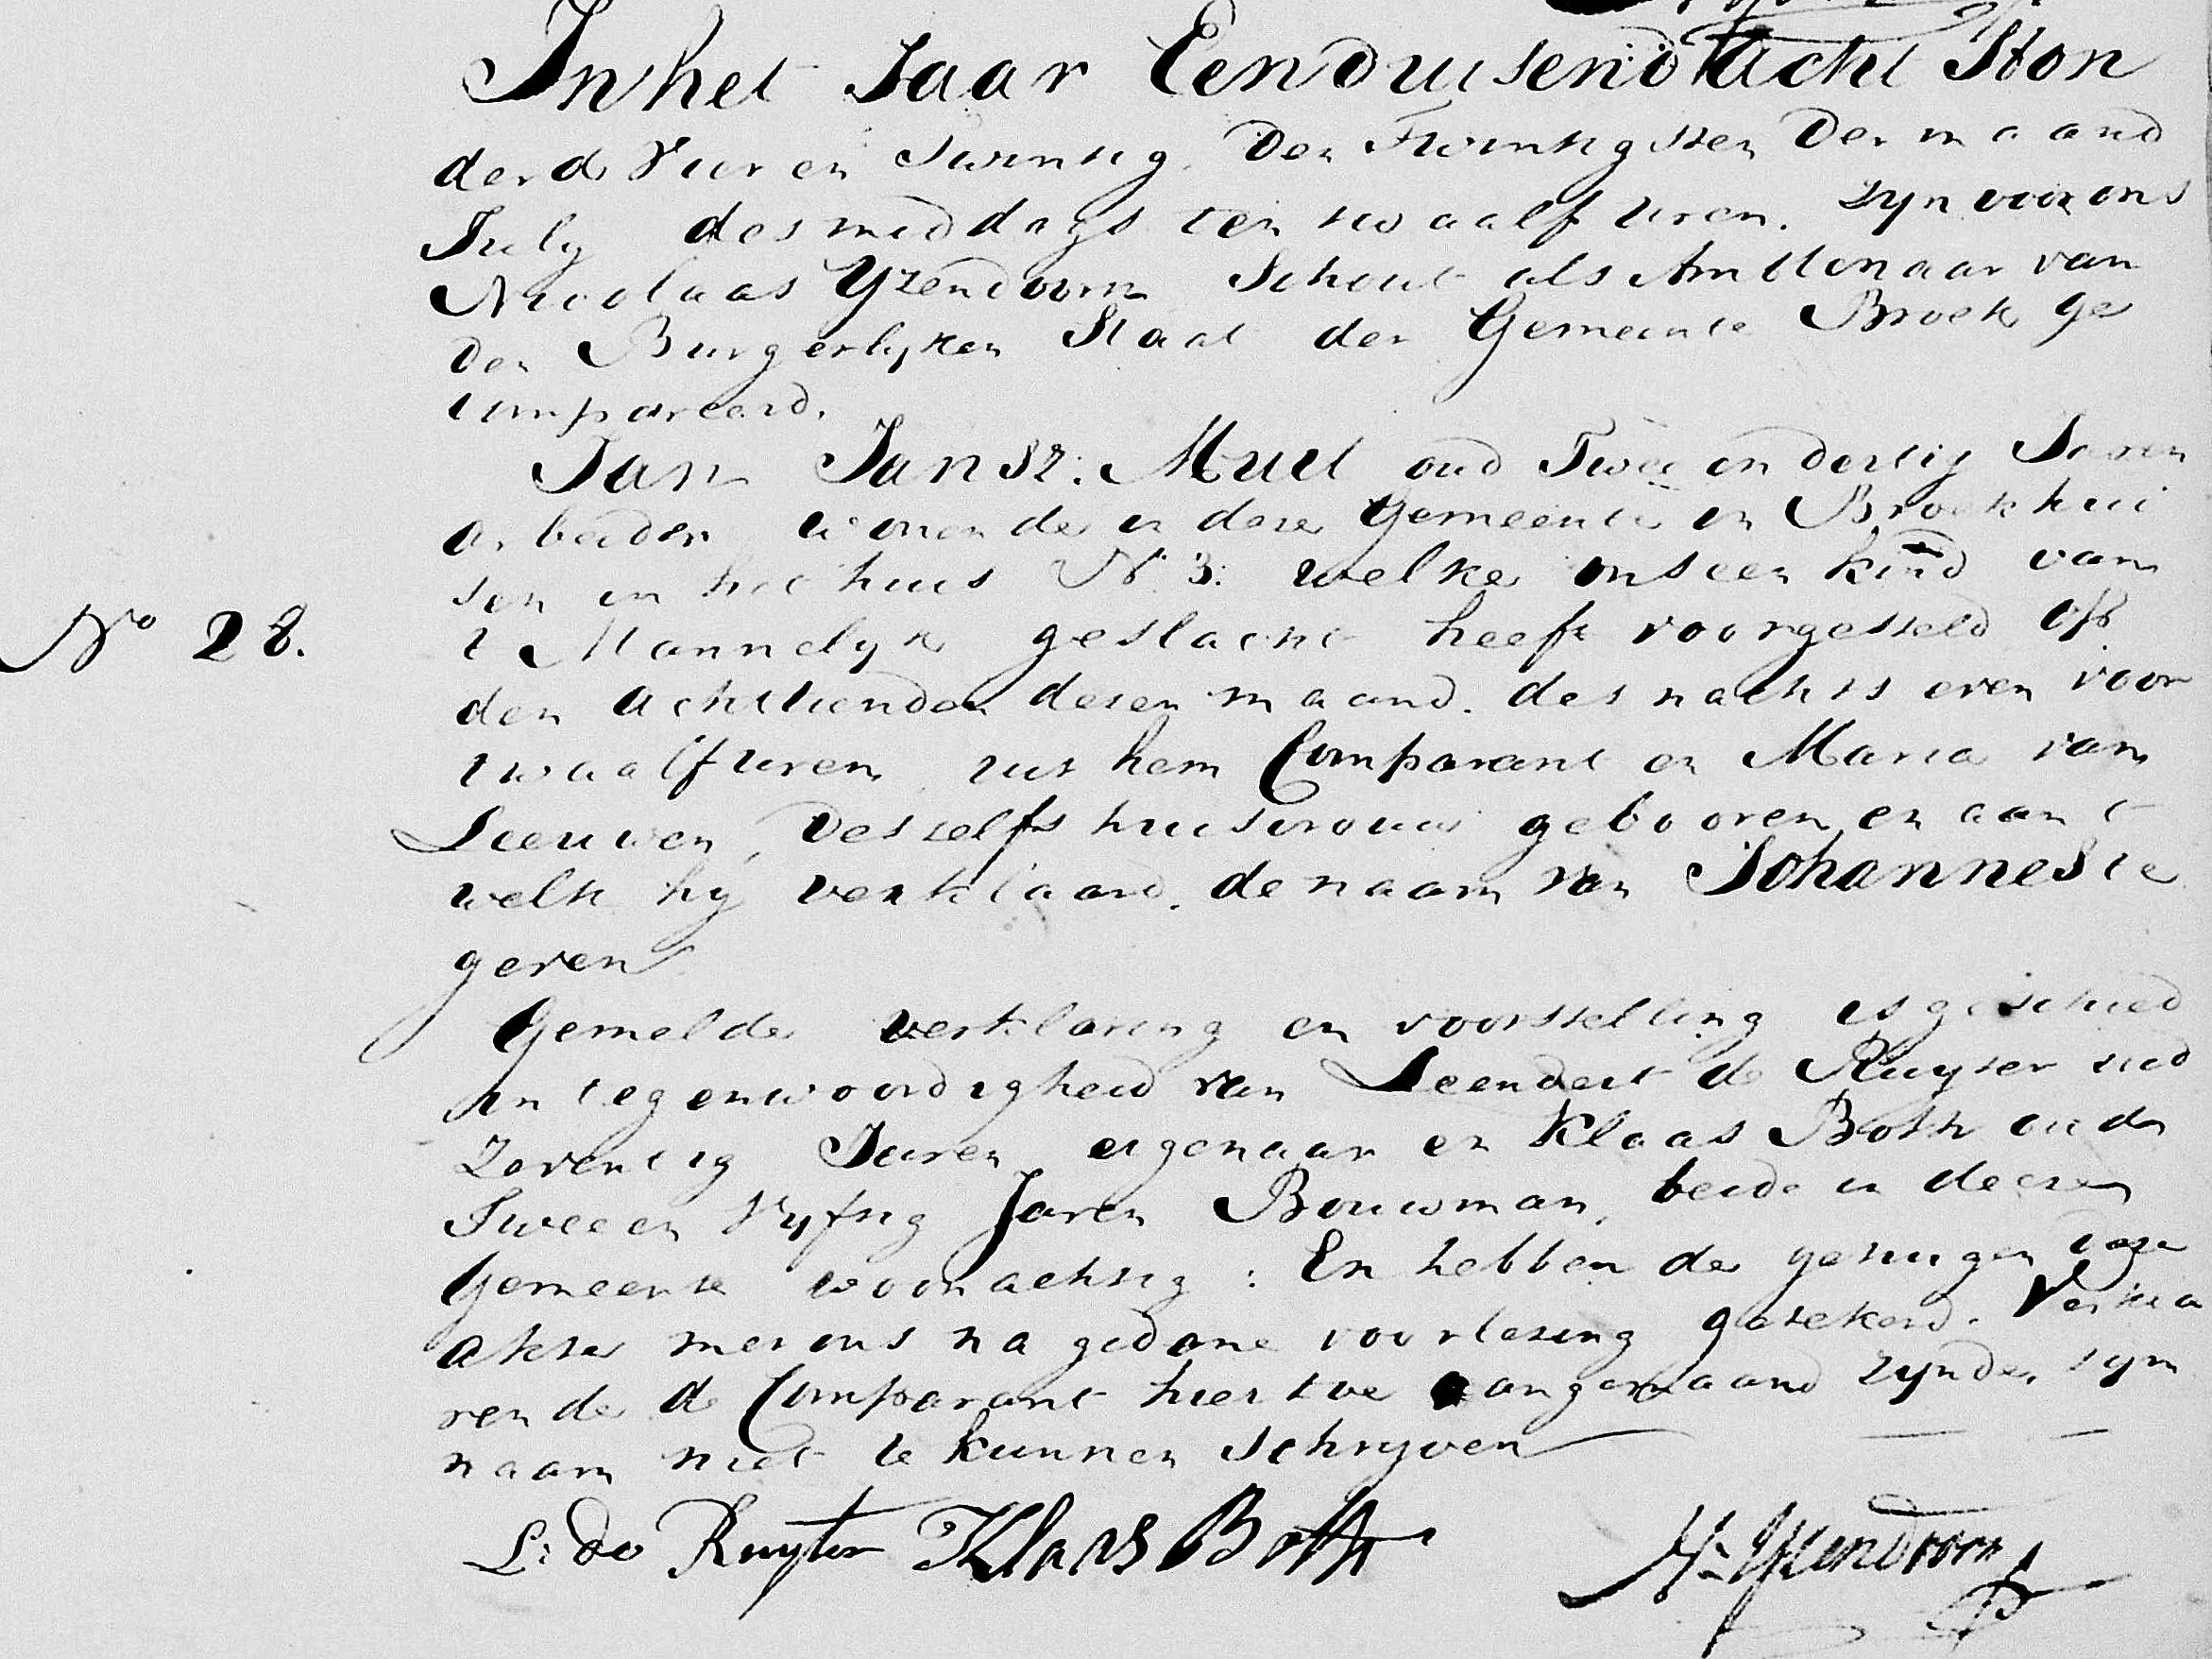 In het Jaar Eenduisend Acht Hon
derd Vier en Twintig. Den Twintigsten Der maand
July des middags ten twaalf uren. zyn voor ons
Nicolaas Yzendoorn Schout als Amttenaar van
den Burgerlyken Staat der Gemeente Broek ge
compareerd.
Jan Jansz. Muet oud Twee en dertig Jaren
arbeider wonende in deze Gemeente in Broekhui
sen in het huis N 3. welke ons een kind van
No 28.
t Mannelyk geslacht heeft voorgesteld op
den Achttienden dezer maand. des nachts even voor
twaalf uren uit hem Comparant en Maria van
Leeuwen, deszelfs huisvrouw gebooren, en aan t
welk hy verklaard. de naam van Johannes te
geven
Gemelde verklaring en voorstelling is geschied
in tegenwoordigheid van Leendert de Ruyter oud
Zeventig Jaren eigenaar en Klaas Both oud
Twee en Vyftig Jaren Bouwman, beide in deezen
Gemeente woonachtig : En hebben de getuigen deze
akte met ons na gedane voorlesing getekend. Verkla
rende de Comparant hier toe aangemaand zynde, syn
naam niet te kunnen schryven
L: de Ruyter Klaas Both N. Yzendoorn